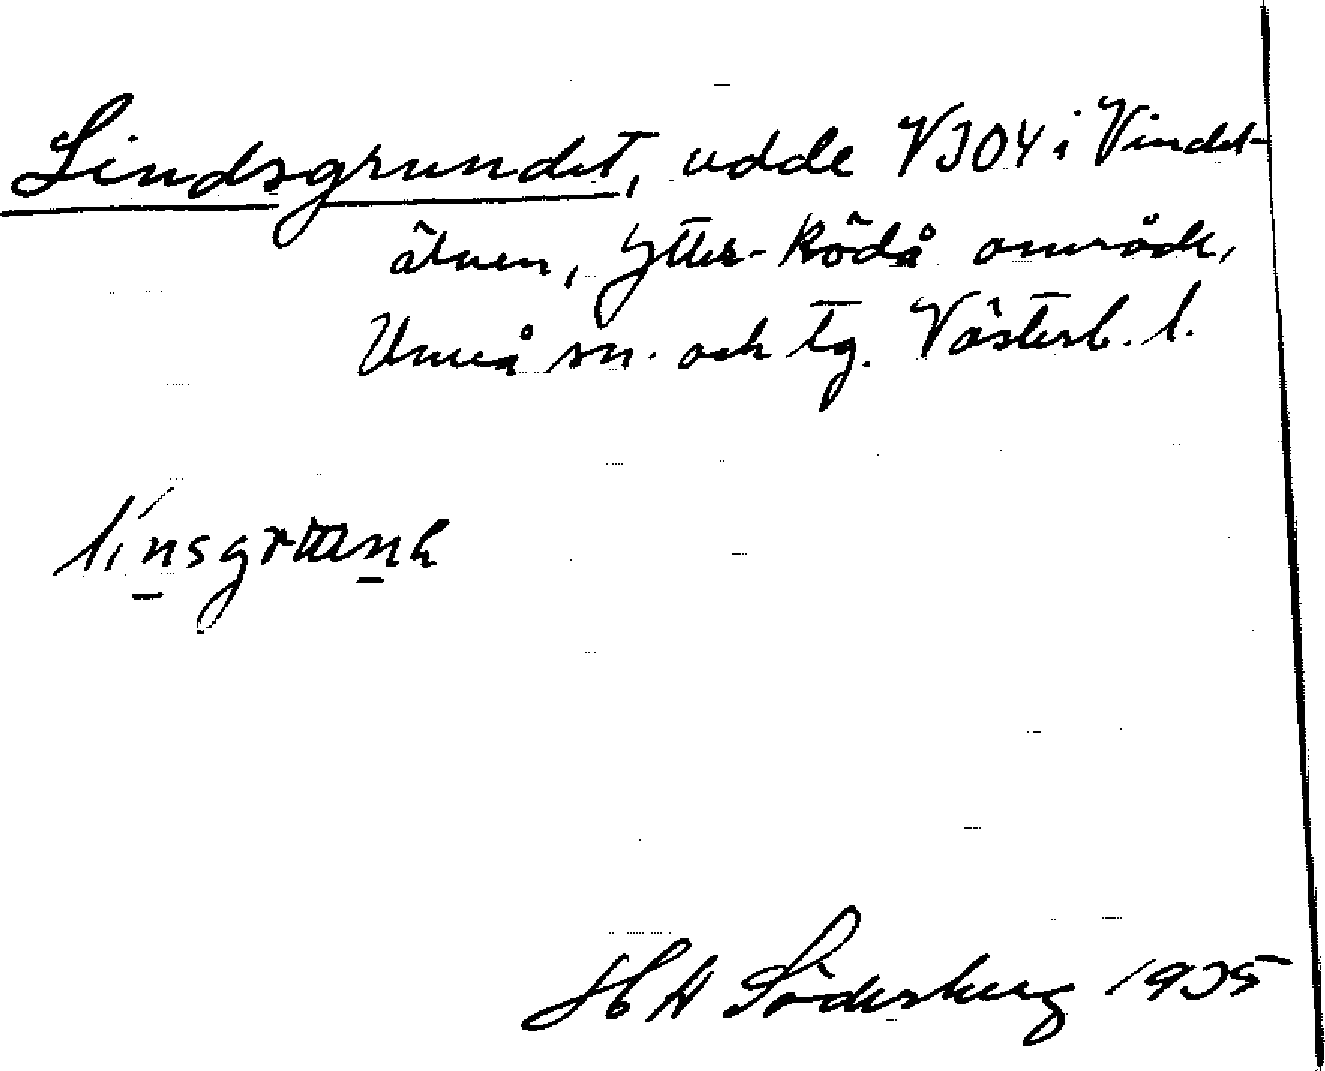 Lindsgrundet, udde V304 i Vindel-
älven, Ytter-Rödå område,
Umeå sn. och tg. Västerb. l.
H A Söderberg 1935